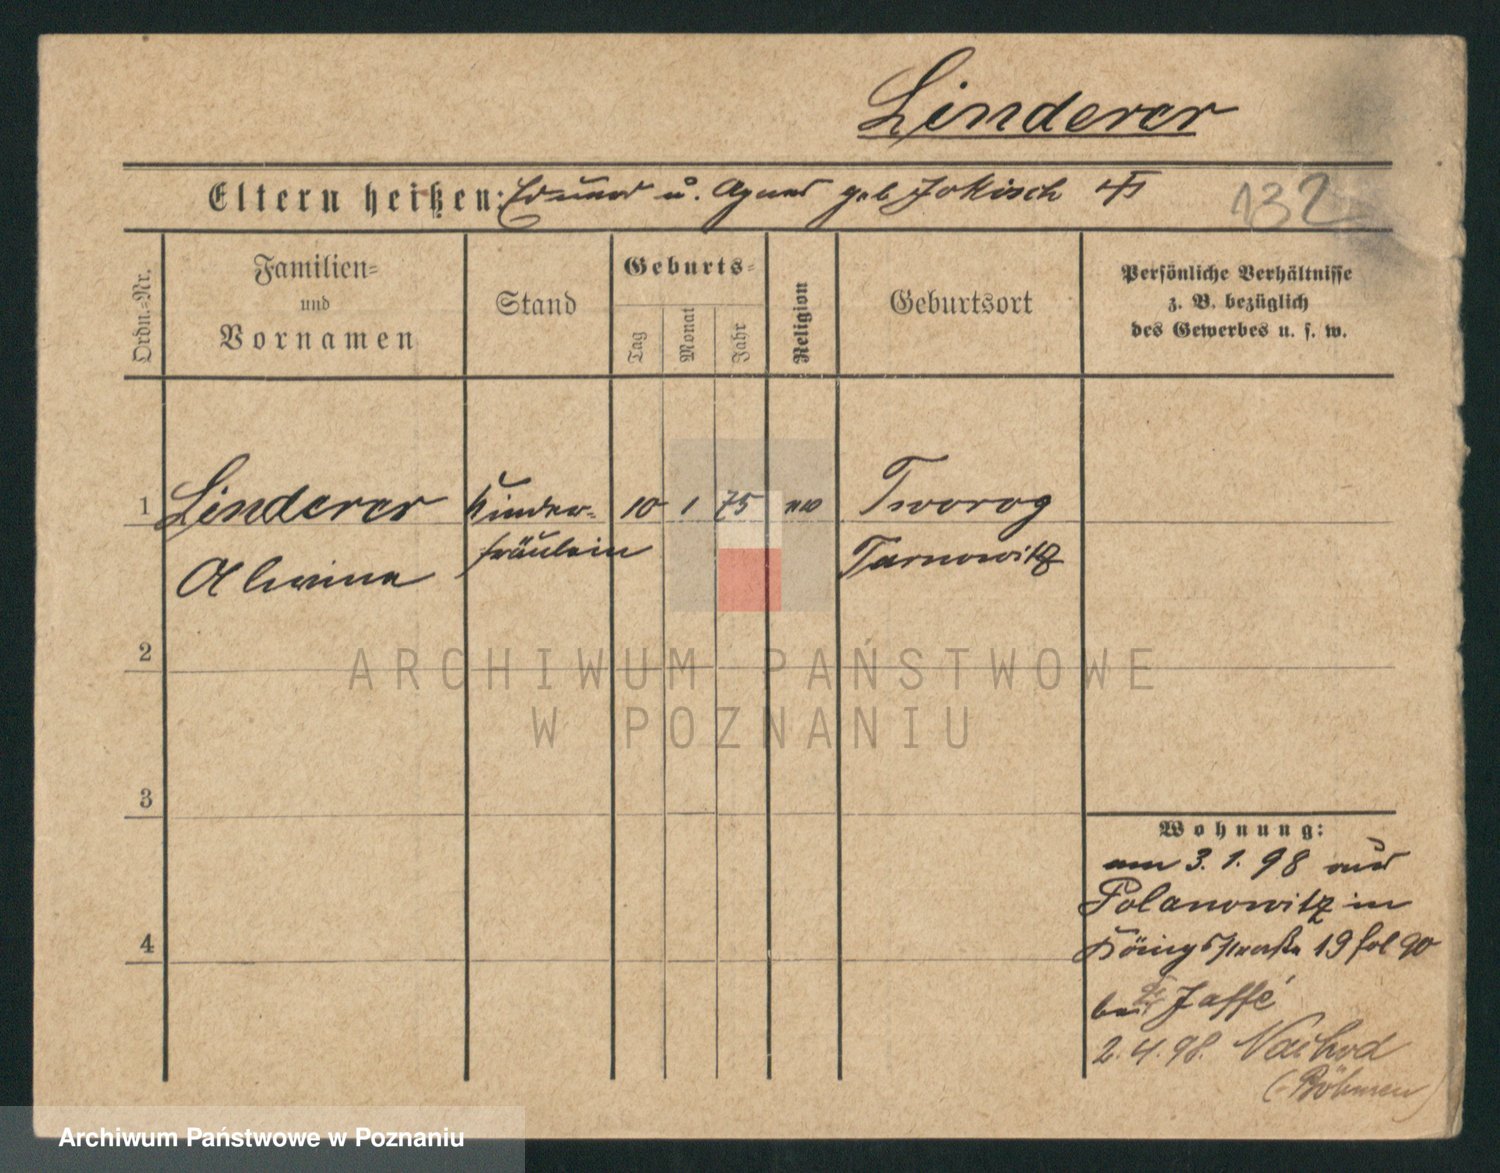 Linderer
Eltern heißen: Eduard u. Agnes geb Jokisch
132
Ordn.-Nr.
Familien-
und
Vornamen
Stand
Geburts-
Tag
Monat
Jahr
Religion
Geburtsort
Persönliche Verhältnisse
z. B. bezüglich
des Gewerbes u. s. w.
1 Linderer Kinder- 10 1 75 ev Tworog
Alwine fräulein Tarnowitz
2
ARCHIWUM PAŃSTWOWE
W POZNANIU
3
Wohnung:
am 3. 1. 98 aus
Polanowitz in
4
Königsstraße 19 fol 90
bei Jaffé
2. 4. 98. Nachod
(Böhmen)
Archiwum Państwowe w Poznaniu